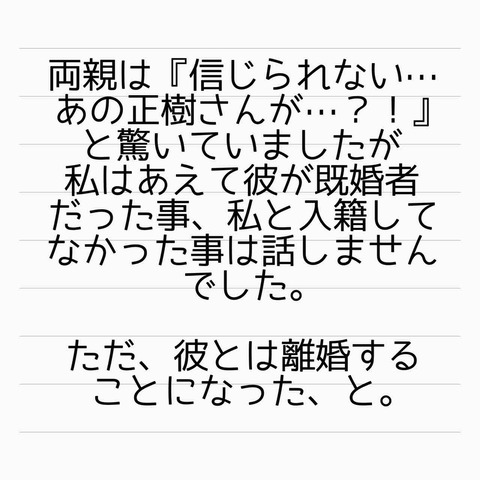 両親は『信じられない…
あの正樹さんが…？！』
と驚いていましたが
私はあえて彼が既婚者
だった事、私と入籍して
なかった事は話しません
でした。
ただ、彼とは離婚する
ことになった、と。